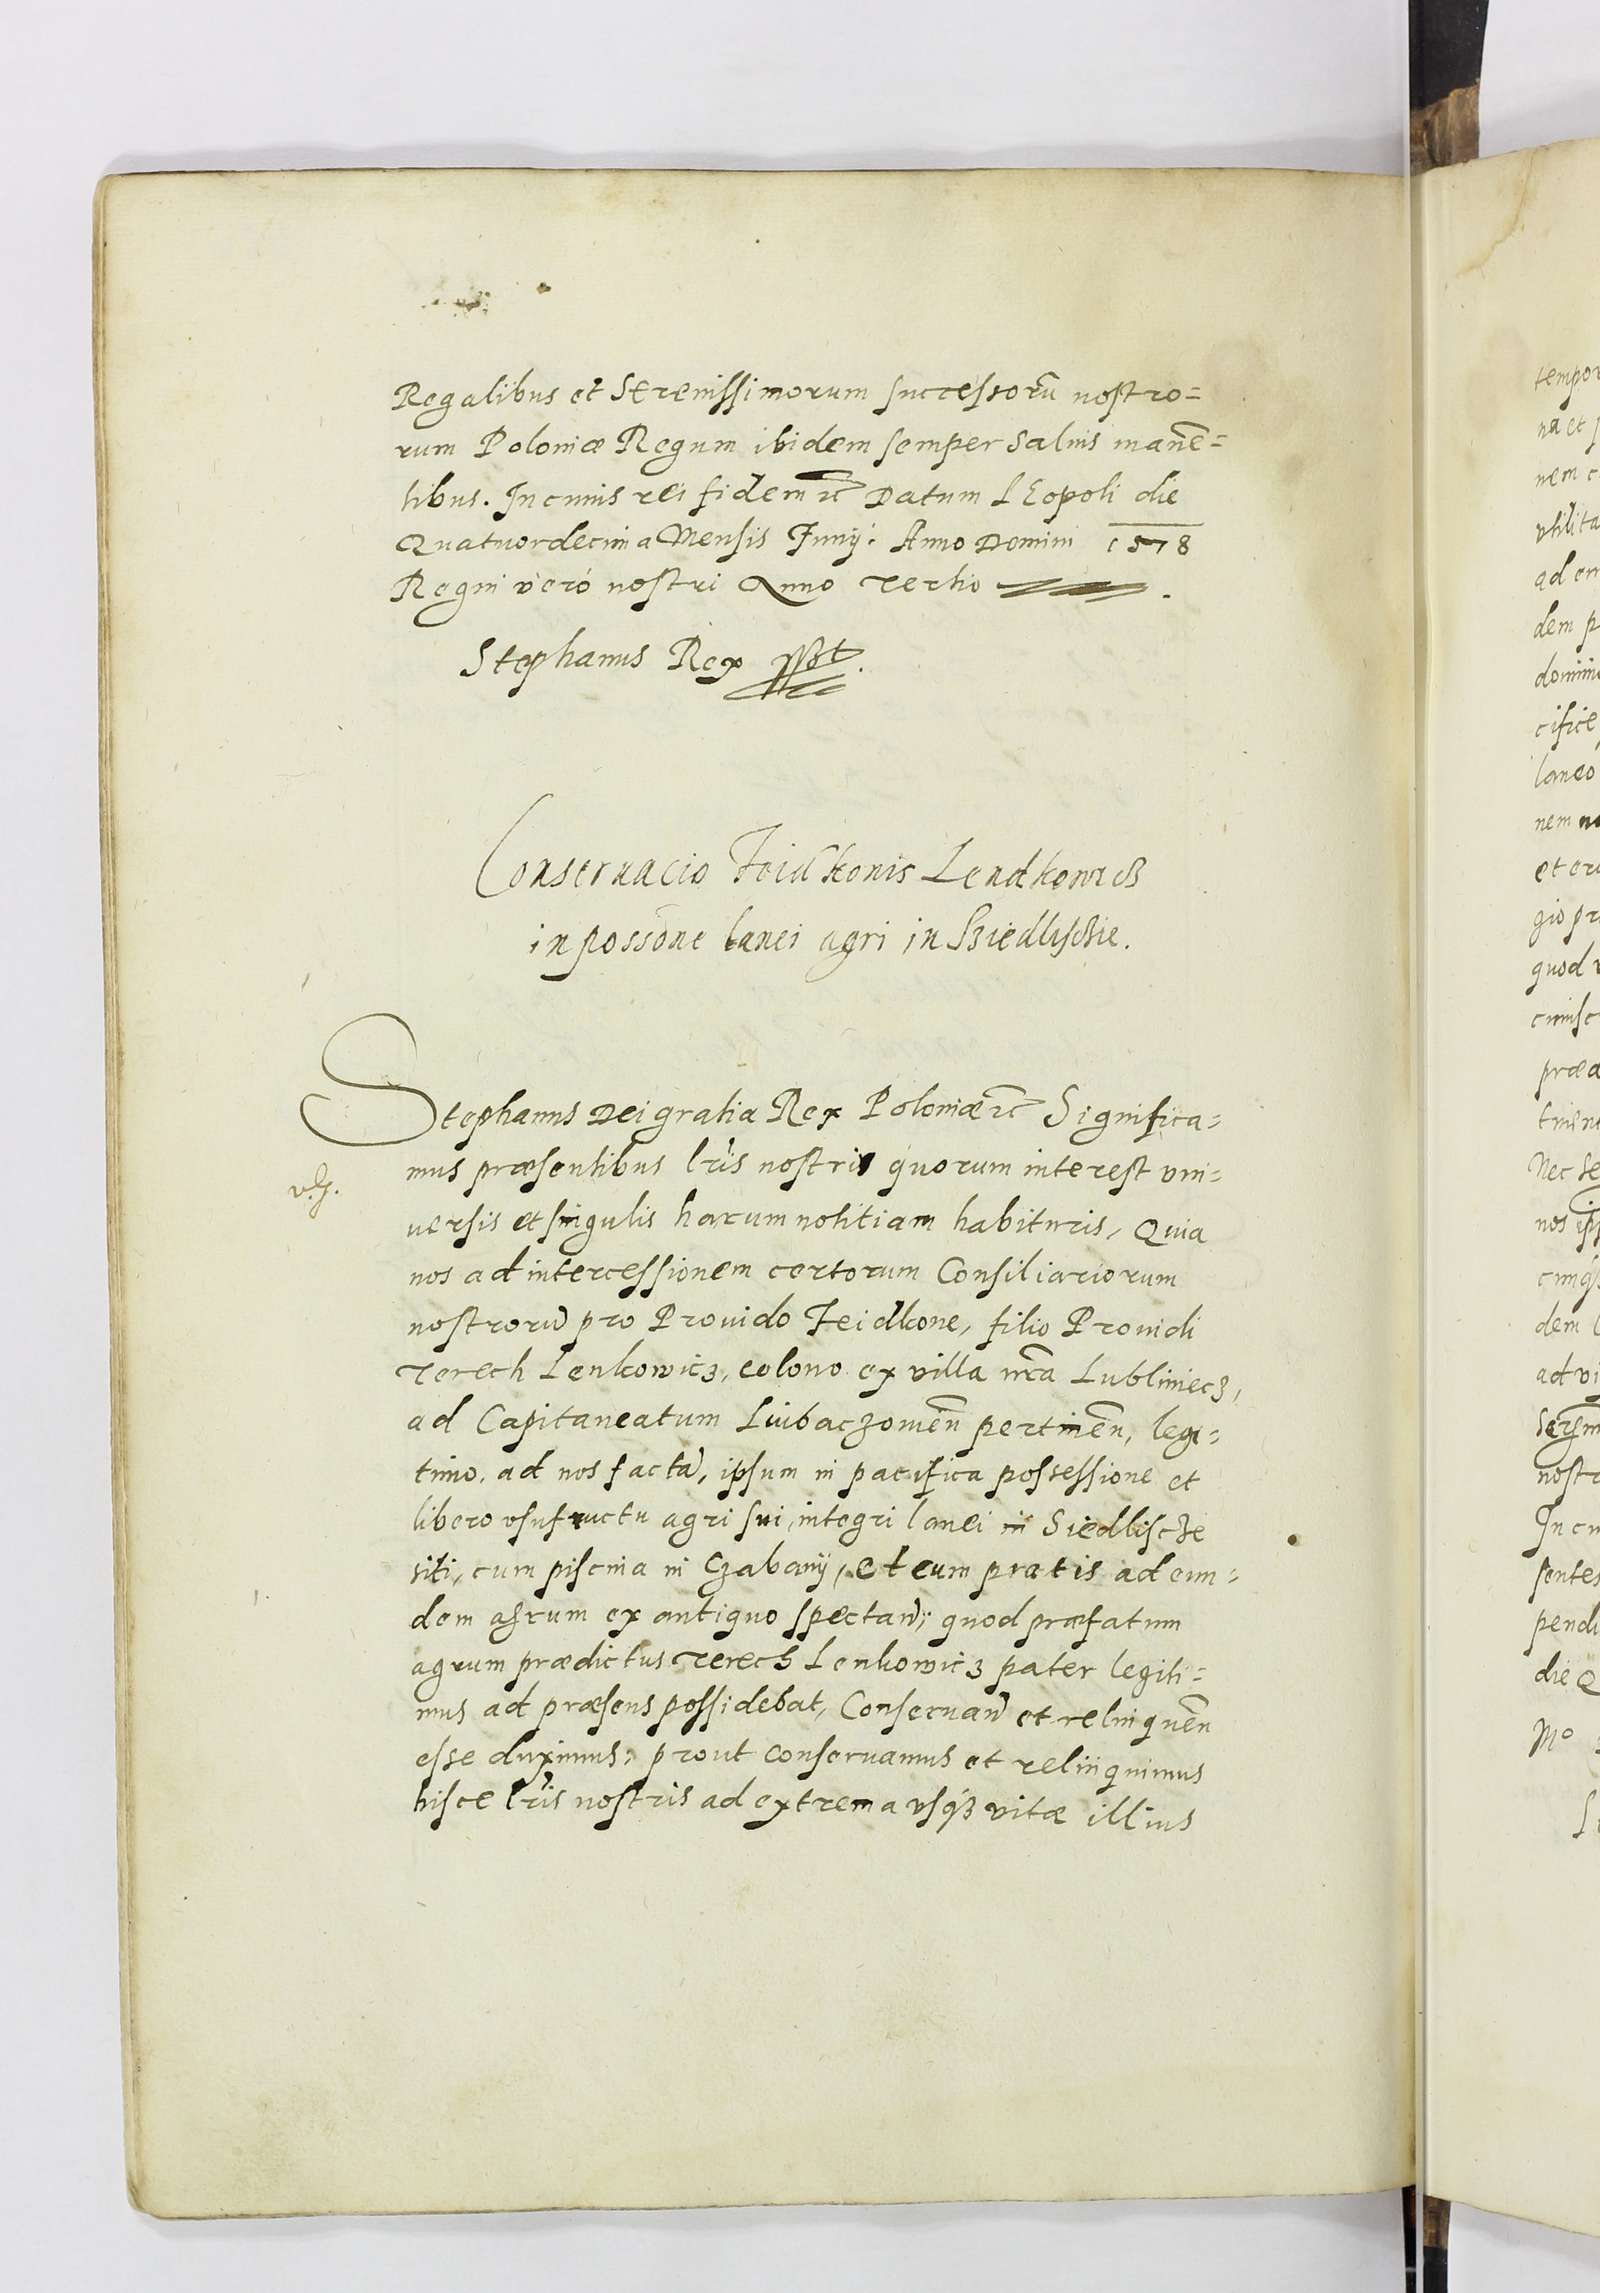 Regalibus et Serenissimorum successorũ nostro=
rum Poloniæ Regum ibidem semper saluis manẽ=
tibus. In cuius rei fidem ꝛc Datum Leopoli die
Quatuordecima Mensis Junij. Anno Domini 1578
Regni verò nostri Anno Tertio
Stephanus Rex sszt
Conseruacio Feidkonis Lendkowicz
in possone lanei agri in Sziedlisczie.
Stephanus Dei gratia Rex Poloniæ ꝛc Significa=
mus præsentibus lris nostris quorum interest vni=
uersis et singulis harum notitiam habituris, Quia
nos ad intercessionem certorum Consiliariorum
nostrorũ pro Prouido Feidkone, filio Prouidi
Terech Lenkowicz, colono ex villa nrã Lubliniecz,
ad Capitaneatum Liubaczouien pertinen, legi=
timo, ad nos factã, ipsum in pacifica possessione et
libero vsufructu agri sui, integri lanei in Siedliscze
siti, cum piscina in Czabanij, et cum pratis ad eun=
dem agrum ex antiquo spectan, quod præfatum
agrum prædictus Terech Lenkowicz pater legiti=
mus ad præsens possidebat, Conseruan et relinquen
esse duximus, prout conseruamus et relinquimus
hisce lris nostris ad extrema vsqꝫ vitæ illius
tempor
nem c
vtilita
dem p
domini
cifice
laneo
nem no
gio pr
quod
præa
nostr
In cu
pendi
die Q